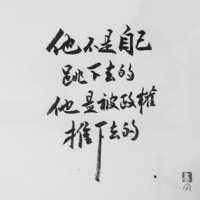 他不是自己
跳下去的
他是被政權
推下去的